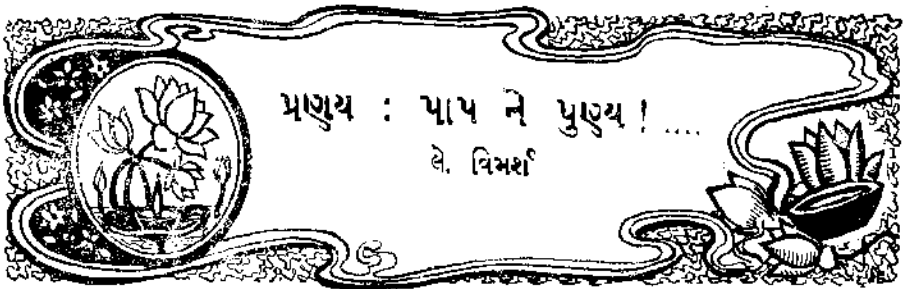 પ્રણય : પાપ ને પુણ્ય !....
લે. વિમર્શ